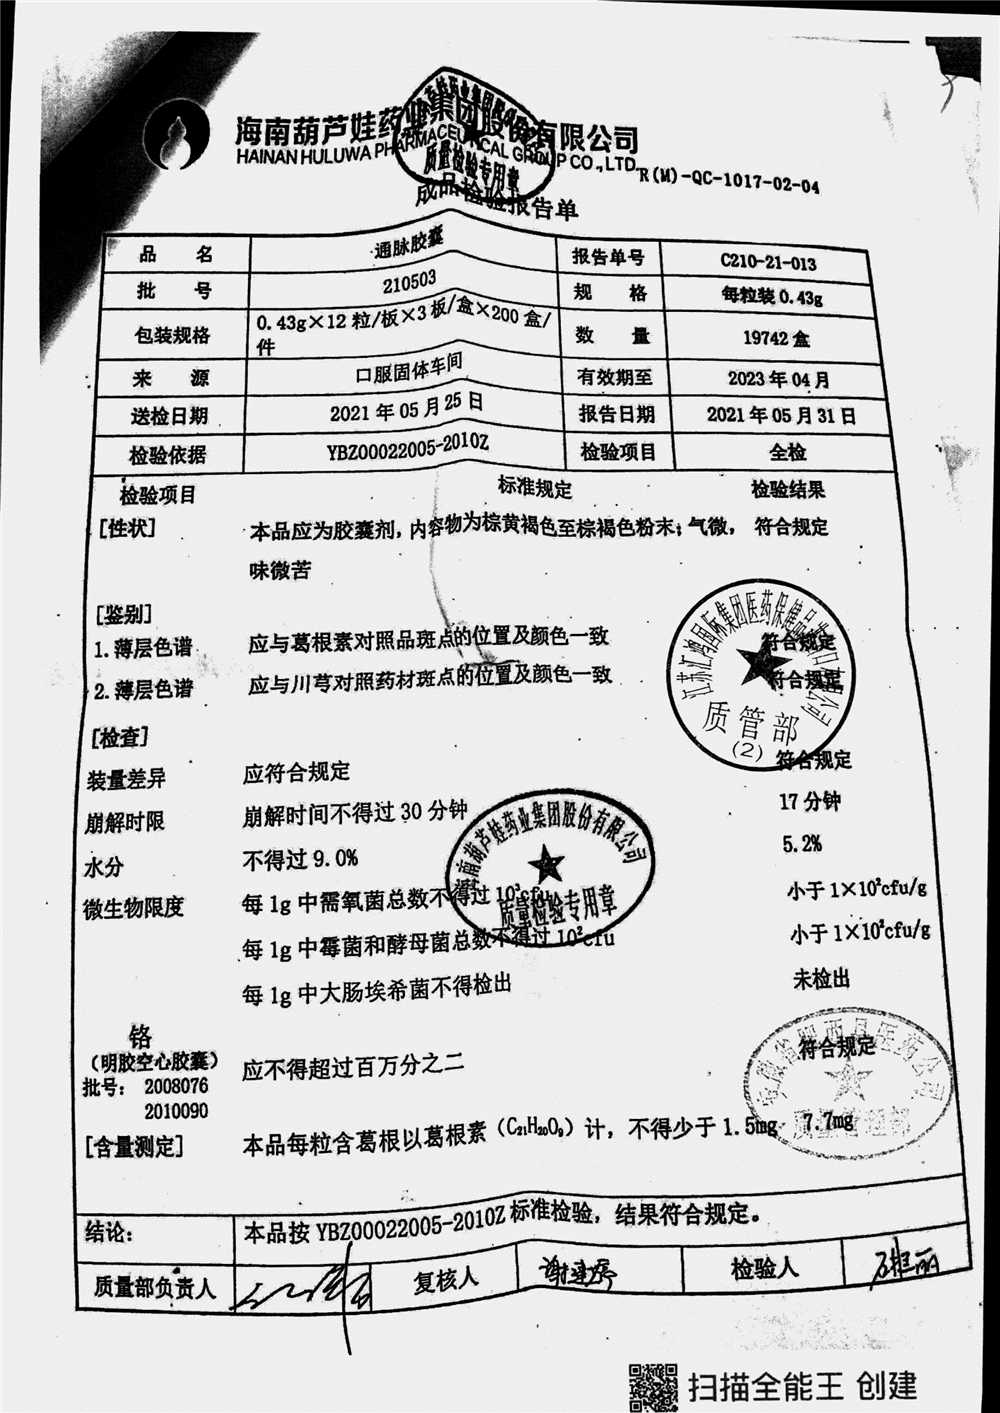 海南葫芦娃药业集团股份有限公司
HAINAN HULUWA PHARMACEUTICAL GROUP CO.,LTD.
R(M)-QC-1017-02-04
成品检验报告单
品 名 通脉胶囊 报告单号 C210-21-013
批 号 210503 规 格 每粒装0.43g
包装规格 0.43g×12粒/板×3板/盒×200盒/件 数 量 19742盒
来 源 口服固体车间 有效期至 2023年04月
送检日期 2021年05月25日 报告日期 2021年05月31日
检验依据 YBZ00022005-2010Z 检验项目 全检
检验项目 标准规定 检验结果
[性状] 本品应为胶囊剂，内容物为棕黄褐色至棕褐色粉末；气微， 符合规定
味微苦
[鉴别]
1.薄层色谱 应与葛根素对照品斑点的位置及颜色一致 符合规定
2.薄层色谱 应与川芎对照药材斑点的位置及颜色一致 符合规定
[检查]
装量差异 应符合规定 符合规定
崩解时限 崩解时间不得过30分钟 17分钟
水分 不得过9.0% 5.2%
微生物限度 每1g中需氧菌总数不得过10³cfu 小于1×10²cfu/g
每1g中霉菌和酵母菌总数不得过10²cfu 小于1×10²cfu/g
每1g中大肠埃希菌不得检出 未检出
铬
（明胶空心胶囊） 应不得超过百万分之二 符合规定
批号： 2008076
2010090
[含量测定] 本品每粒含葛根以葛根素（C₂₁H₂₀O₉）计，不得少于1.5mg 7.7mg
结论： 本品按YBZ00022005-2010Z标准检验，结果符合规定。
质量部负责人 复核人 检验人
海南葫芦娃药业集团股份有限公司
质量检验专用章
质管部
(2)
扫描全能王 创建